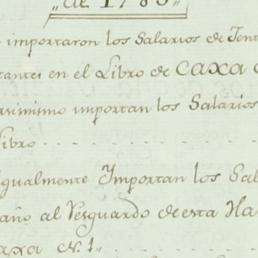 „de 1785„
importaron los Salarios de
en el Libro de Caxa
asimismo importan los Salarios
Libro
Igualmente Importan los
año al Resguardo de esta